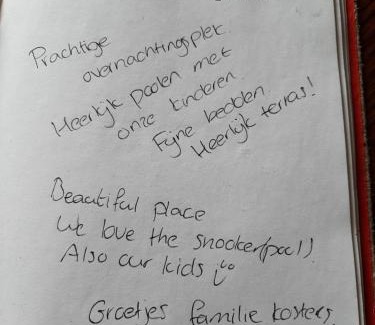 Prachtige
overnachtingsplek.
Heerlijk poolen met
onze kinderen
Fijne bedden
Heerlijk terras!
Beautiful place
We love the snooker(pool)!
Also our kids
Groetjes familie Kosters